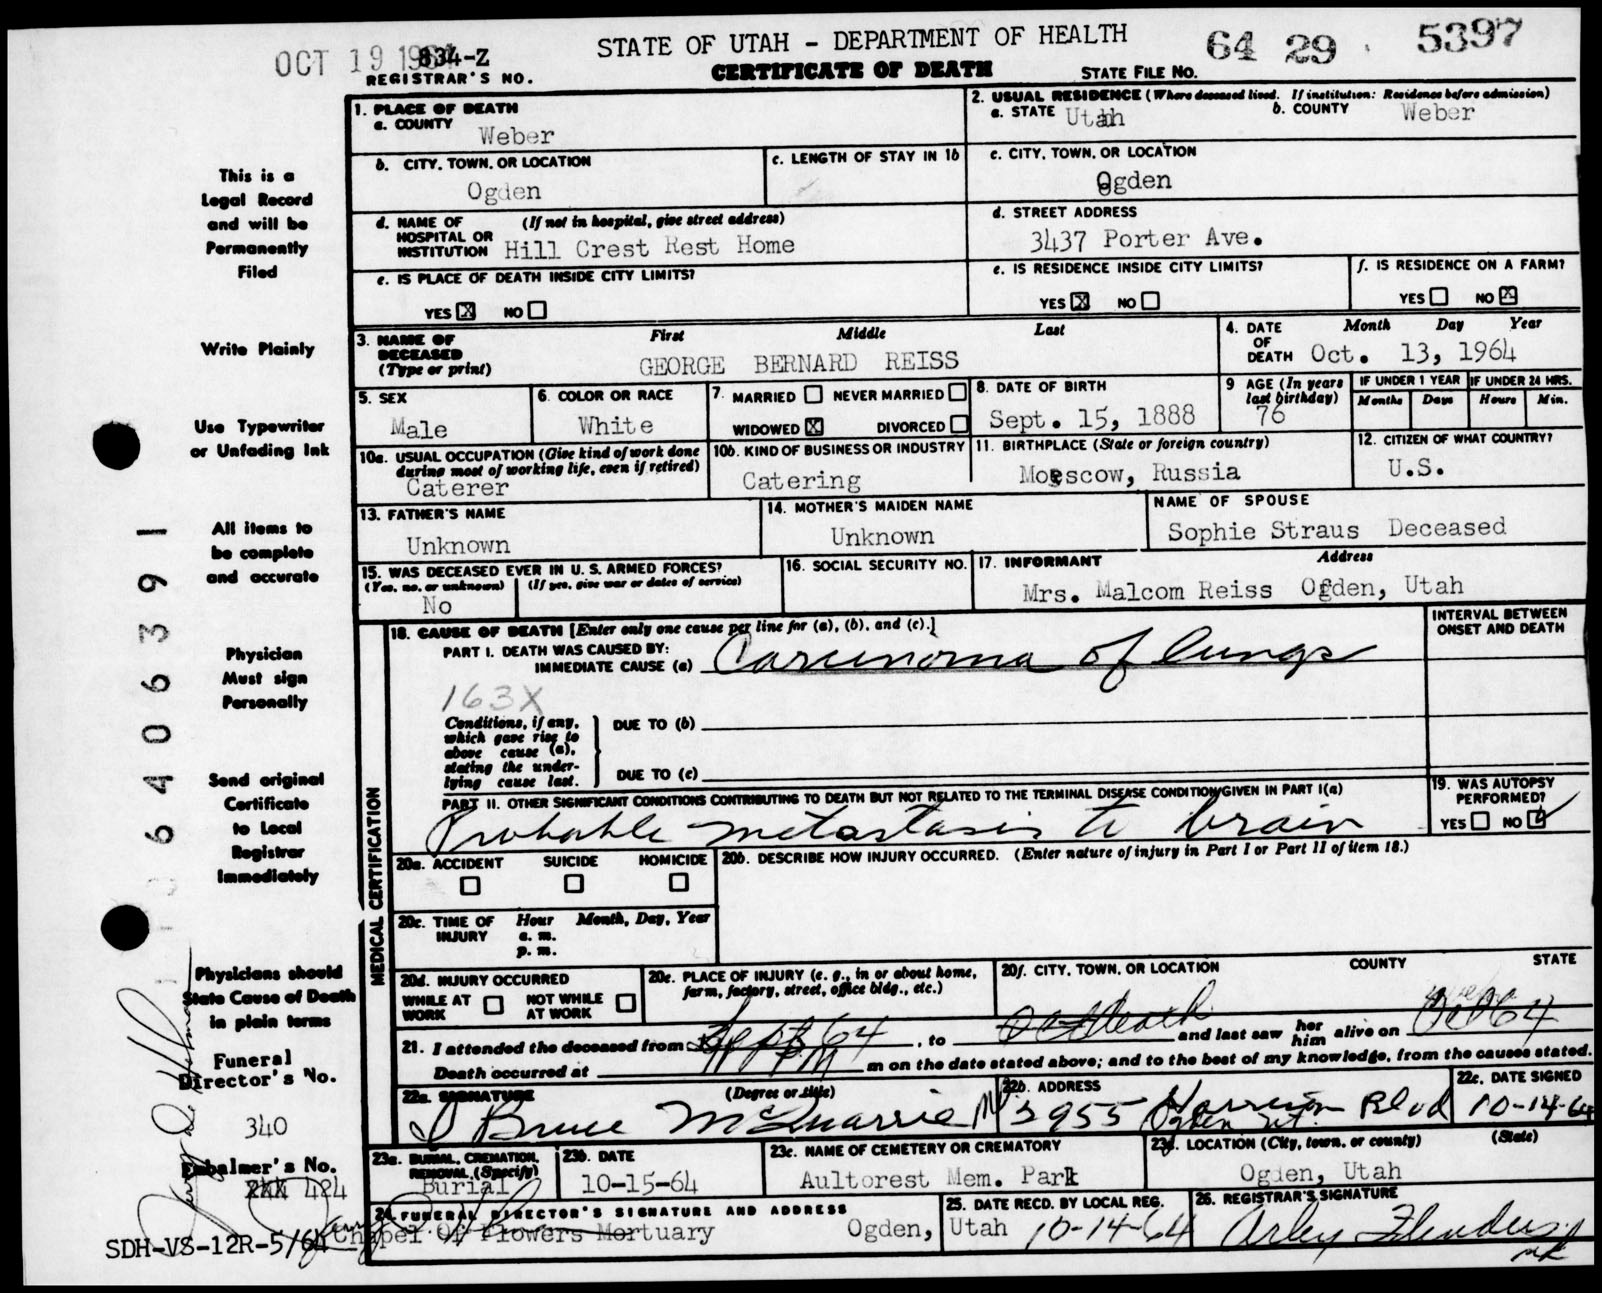 OCT 19 1964
834-Z
REGISTRAR'S NO.
STATE OF UTAH - DEPARTMENT OF HEALTH
CERTIFICATE OF DEATH
STATE FILE NO. 64 29 5397
1. PLACE OF DEATH
a. COUNTY
Weber
2. USUAL RESIDENCE (Where deceased lived. If institution: Residence before admission)
a. STATE Utah
b. COUNTY Weber
b. CITY, TOWN, OR LOCATION
Ogden
c. LENGTH OF STAY IN 1b
c. CITY, TOWN, OR LOCATION
Ogden
d. NAME OF HOSPITAL OR INSTITUTION
(If not in hospital, give street address)
Hill Crest Rest Home
d. STREET ADDRESS
3437 Porter Ave.
e. IS PLACE OF DEATH INSIDE CITY LIMITS?
YES X NO
e. IS RESIDENCE INSIDE CITY LIMITS?
YES X NO
f. IS RESIDENCE ON A FARM?
YES NO X
3. NAME OF DECEASED (Type or print)
First Middle Last
GEORGE BERNARD REISS
4. DATE OF DEATH
Month Day Year
Oct. 13, 1964
5. SEX
Male
6. COLOR OR RACE
White
7. MARRIED NEVER MARRIED
WIDOWED X DIVORCED
8. DATE OF BIRTH
Sept. 15, 1888
9 AGE (In years last birthday)
76
IF UNDER 1 YEAR
Months Days
IF UNDER 24 HRS.
Hours Min.
10a. USUAL OCCUPATION (Give kind of work done during most of working life, even if retired)
Caterer
10b. KIND OF BUSINESS OR INDUSTRY
Catering
11. BIRTHPLACE (State or foreign country)
Moscow, Russia
12. CITIZEN OF WHAT COUNTRY?
U.S.
13. FATHER'S NAME
Unknown
14. MOTHER'S MAIDEN NAME
Unknown
NAME OF SPOUSE
Sophie Straus Deceased
15. WAS DECEASED EVER IN U.S. ARMED FORCES?
(Yes, no, or unknown) (If yes, give war or dates of service)
No
16. SOCIAL SECURITY NO.
17. INFORMANT Address
Mrs. Malcom Reiss Ogden, Utah
MEDICAL CERTIFICATION
18. CAUSE OF DEATH [Enter only one cause per line for (a), (b), and (c).]
INTERVAL BETWEEN ONSET AND DEATH
PART I. DEATH WAS CAUSED BY:
IMMEDIATE CAUSE (a) Carcinoma of lungs
163X
Conditions, if any, which gave rise to above cause (a), stating the underlying cause last.
DUE TO (b)
DUE TO (c)
PART II. OTHER SIGNIFICANT CONDITIONS CONTRIBUTING TO DEATH BUT NOT RELATED TO THE TERMINAL DISEASE CONDITION GIVEN IN PART I(a)
Probable metastasis to brain
19. WAS AUTOPSY PERFORMED?
YES NO
20a. ACCIDENT SUICIDE HOMICIDE
20b. DESCRIBE HOW INJURY OCCURRED. (Enter nature of injury in Part I or Part II of item 18.)
20c. TIME OF INJURY
Hour Month, Day, Year
a. m.
p. m.
20d. INJURY OCCURRED
WHILE AT WORK NOT WHILE AT WORK
20e. PLACE OF INJURY (e. g., in or about home, farm, factory, street, office bldg., etc.)
20f. CITY, TOWN, OR LOCATION COUNTY STATE
21. I attended the deceased from Sept 64, to death and last saw her him alive on Oct 64
Death occurred at PM m on the date stated above; and to the best of my knowledge, from the causes stated.
22a. SIGNATURE (Degree or title)
Bruce McQuarrie
22b. ADDRESS
3955 Harrison Blvd
Ogden Ut.
22c. DATE SIGNED
10-14-64
23a. BURIAL, CREMATION, REMOVAL (Specify)
Burial
23b. DATE
10-15-64
23c. NAME OF CEMETERY OR CREMATORY
Aultorest Mem. Park
23d. LOCATION (City, town, or county) (State)
Ogden, Utah
24. FUNERAL DIRECTOR'S SIGNATURE AND ADDRESS
Chapel Of Flowers Mortuary Ogden, Utah
25. DATE RECD. BY LOCAL REG.
10-14-64
26. REGISTRAR'S SIGNATURE
This is a
Legal Record
and will be
Permanently
Filed
Write Plainly
Use Typewriter
or Unfading Ink
All items to
be complete
and accurate
Physician
Must sign
Personally
Send original
Certificate
to Local
Registrar
Immediately
Physicians should
State Cause of Death
in plain terms
Funeral
Director's No.
340
Embalmer's No.
424
SDH-VS-12R-5/64